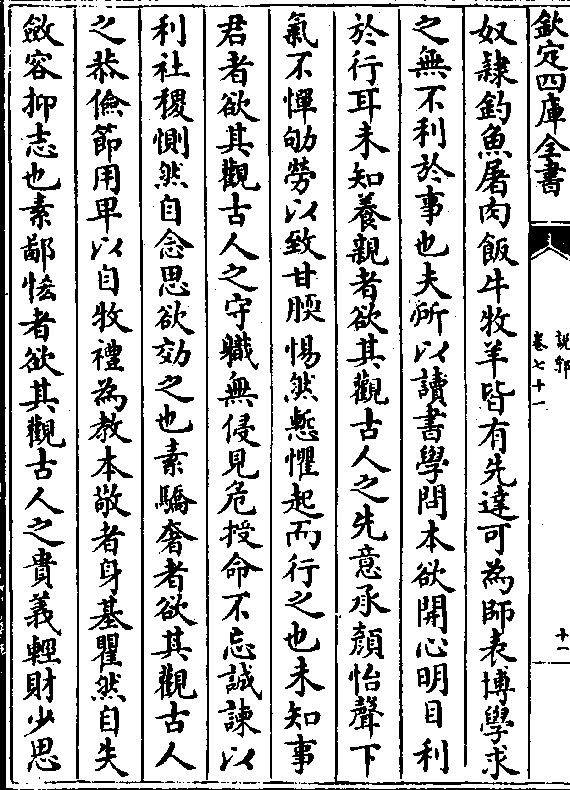 欽定四庫全書
說郛
卷七十一
十一
奴隸釣魚屠肉飯牛牧羊皆有先達可為師表博學求
之無不利於事也夫所以讀書學問本欲開心明目利
於行耳未知養親者欲其觀古人之先意承顔怡聲下
氣不憚劬勞以致甘腝惕然慙懼起而行之也未知事
君者欲其觀古人之守職無侵見危授命不忘誠諫以
利社稷惻然自念思欲効之也素驕奢者欲其觀古人
之恭儉節用卑以自牧禮為教本敬者身基瞿然自失
斂容抑志也素鄙恡者欲其觀古人之貴義輕財少思